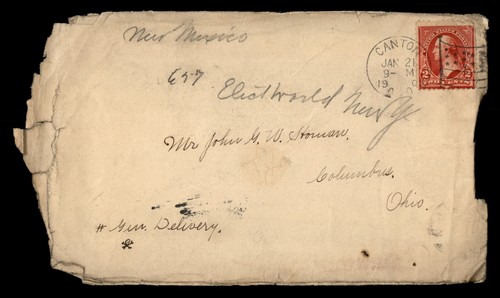 New Mexico
657
Elect World New Y
CANTON
JAN 21
9- M
19
2 2
Mr John G. W.
Columbus.
Ohio.
# Gen. Delivery.